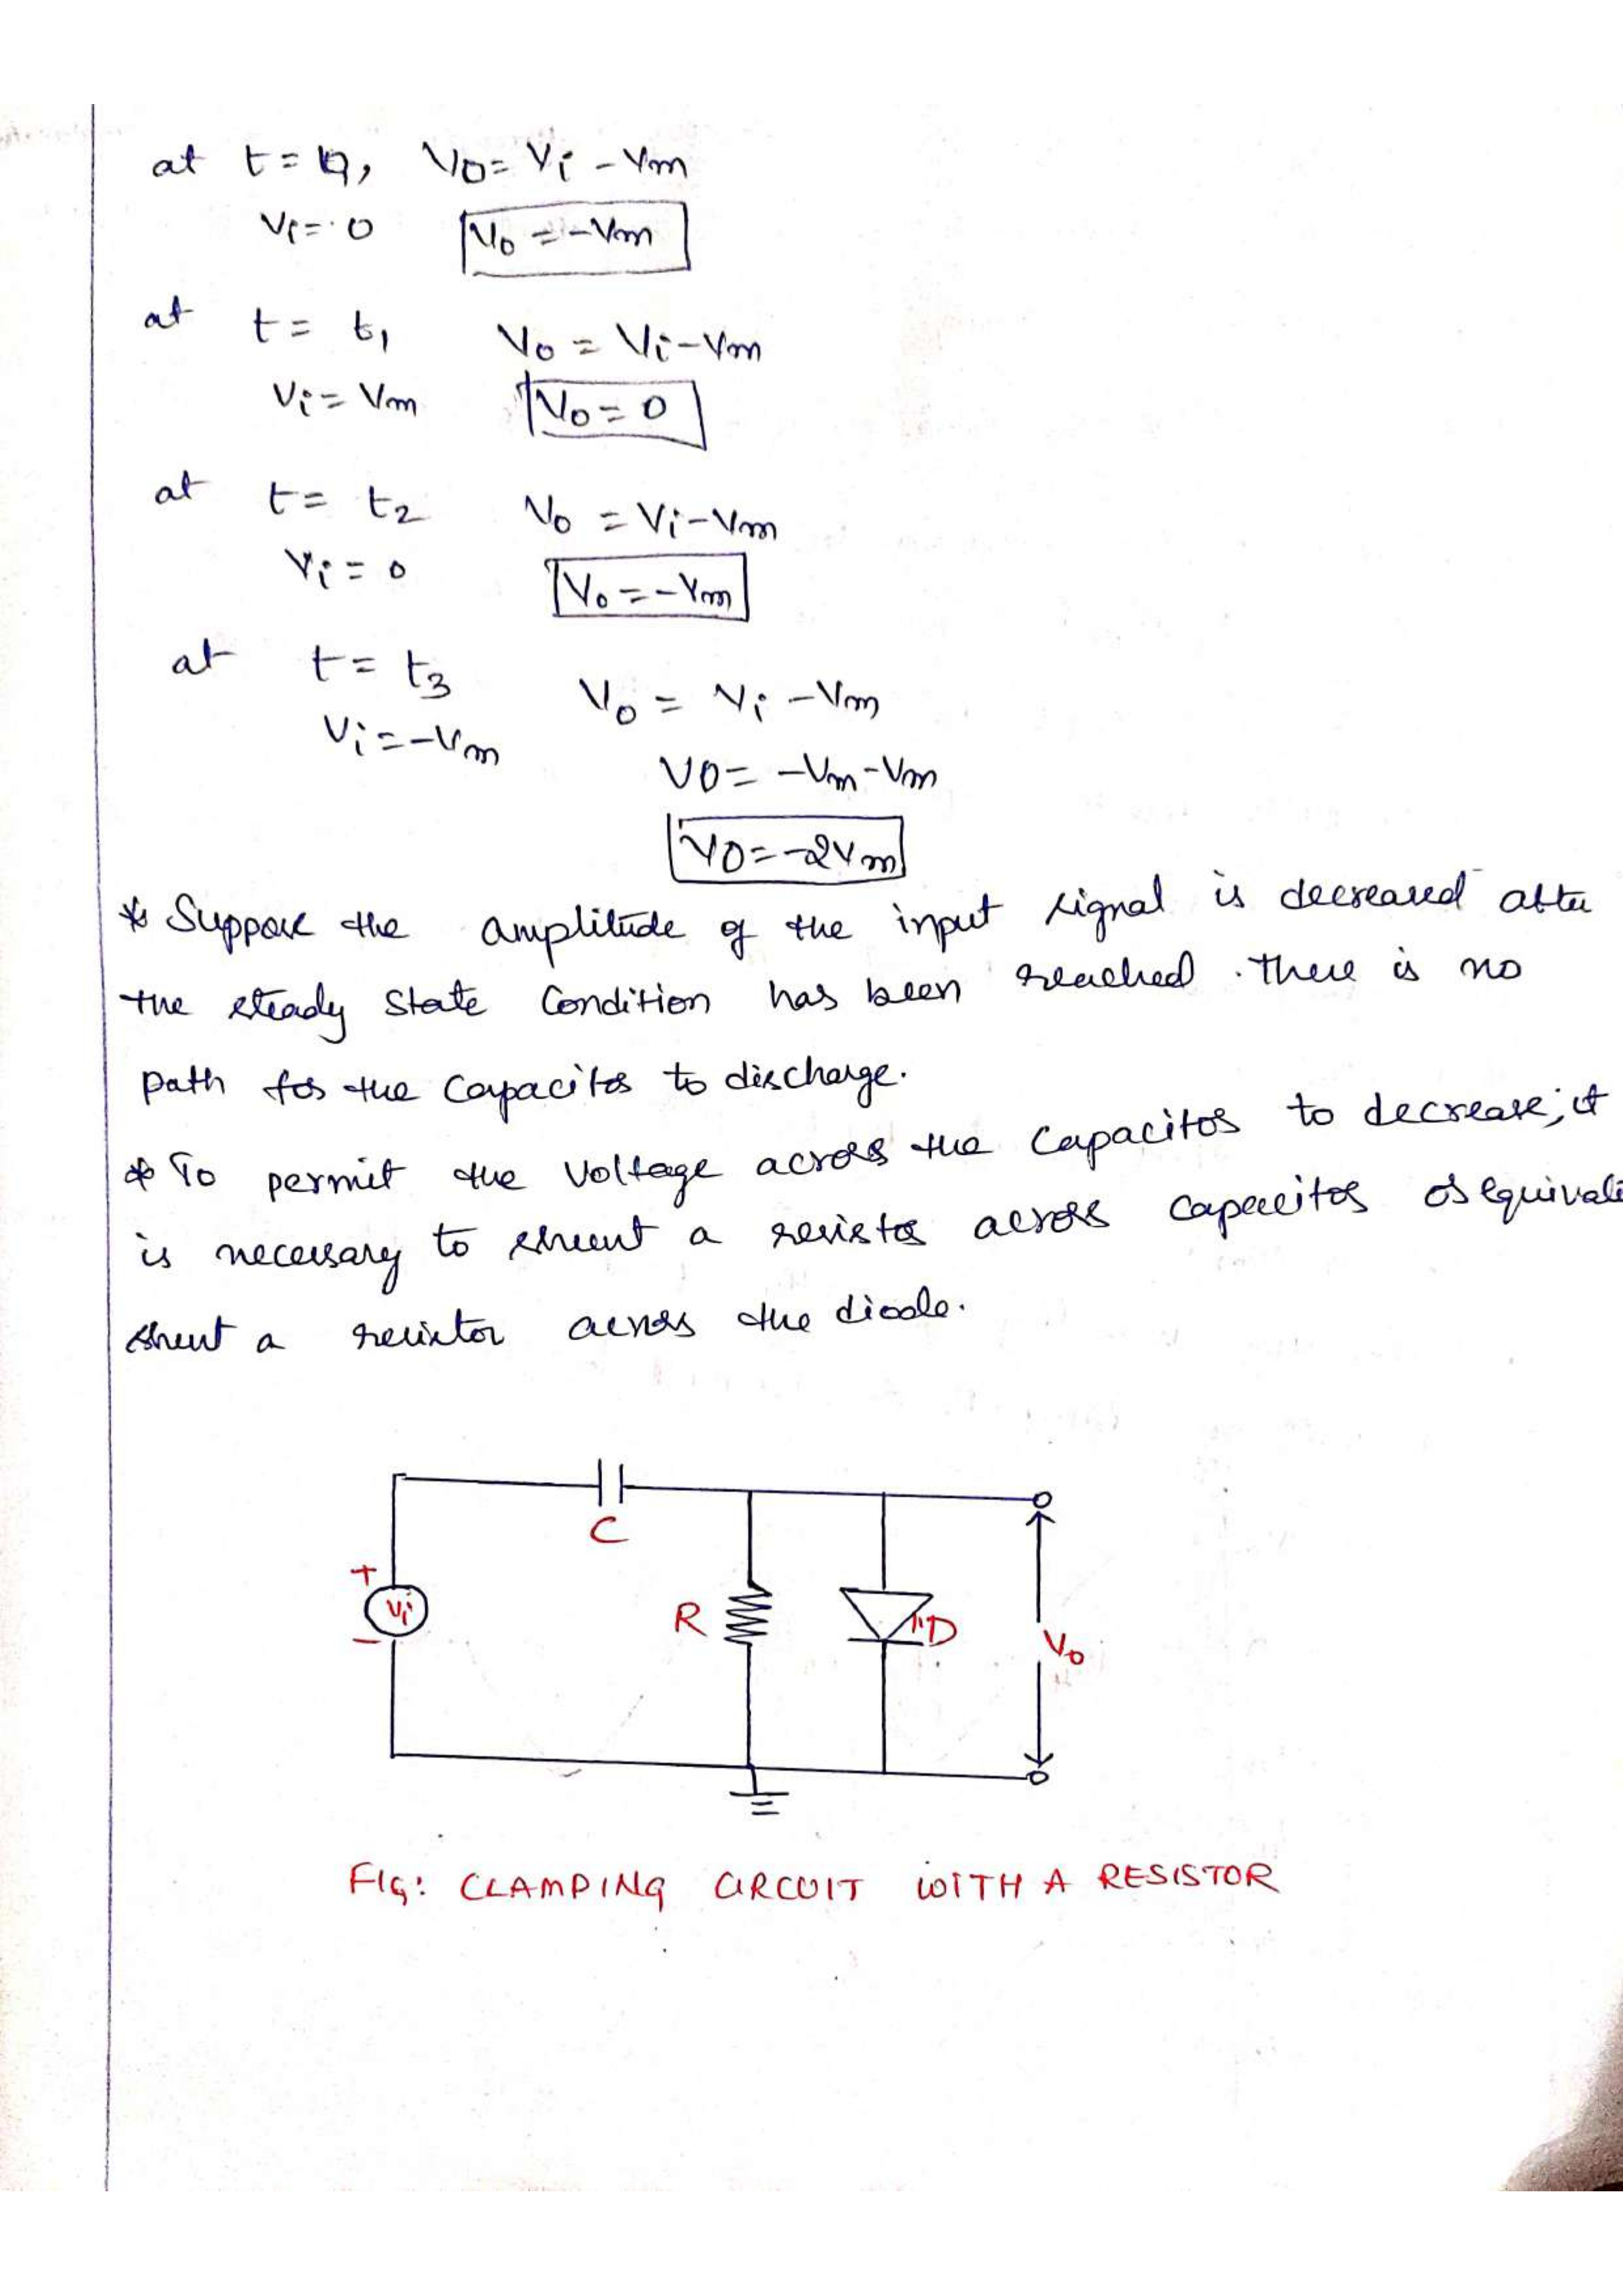 at t = 0, V0 = Vi - Vm
Vi = 0 V0 = -Vm
at t = t1 V0 = Vi - Vm
Vi = Vm V0 = 0
at t = t2 V0 = Vi - Vm
Vi = 0 V0 = -Vm
at t = t3 V0 = Vi - Vm
Vi = -Vm
V0 = -Vm - Vm
V0 = -2Vm
* Suppose the amplitude of the input signal is decreased after
the steady state condition has been reached. there is no
path for the capacitor to discharge.
* To permit the voltage across the capacitor to decrease; it
is necessary to shunt a resistor across capacitor or equivale
shunt a resistor across the diode.
C
+
Vi
-
R
D
V0
FIG: CLAMPING CIRCUIT WITH A RESISTOR